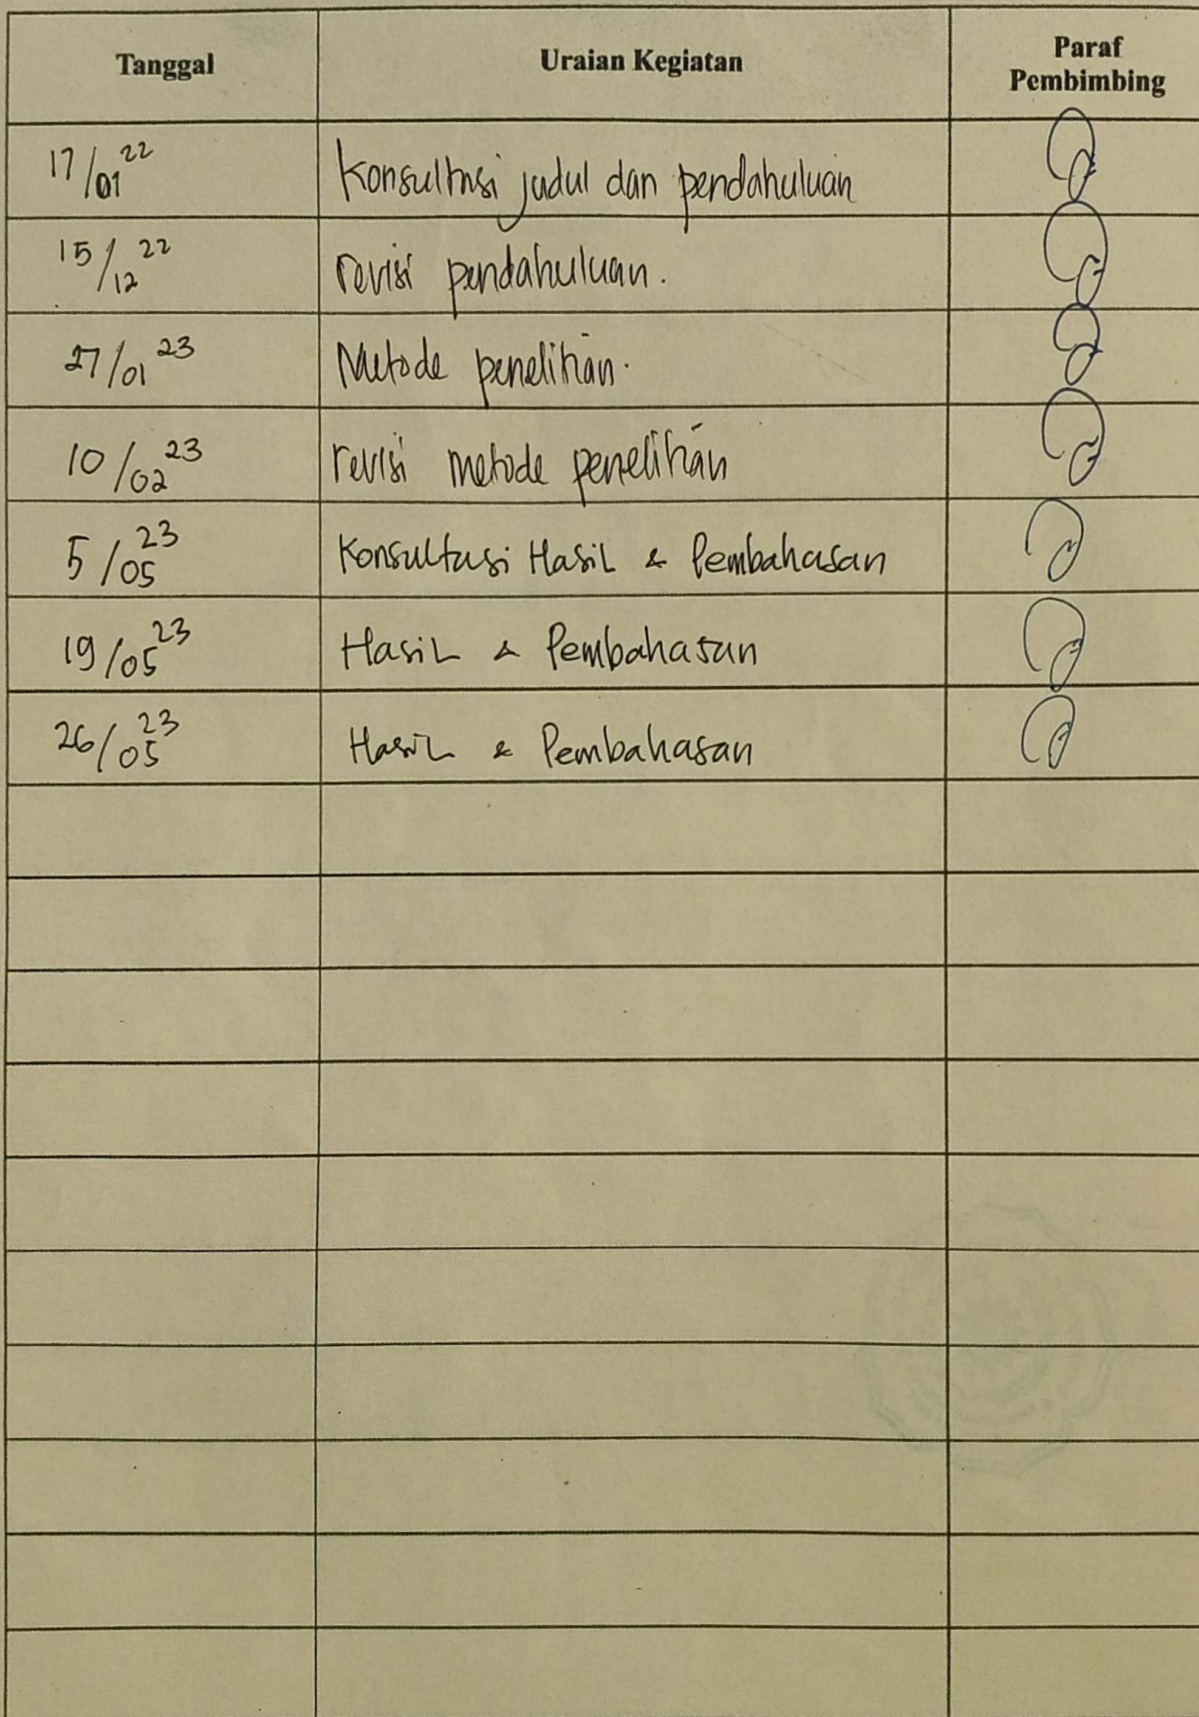 Tanggal Uraian Kegiatan Paraf
Pembimbing
17/01 22 Konsultasi judul dan pendahuluan
15/12 22 revisi pendahuluan.
27/01 23 Metode penelitian.
10/02 23 revisi metode penelitian
5/05 23 Konsultasi Hasil & Pembahasan
19/05 23 Hasil & Pembahasan
26/05 23 Hasil & Pembahasan